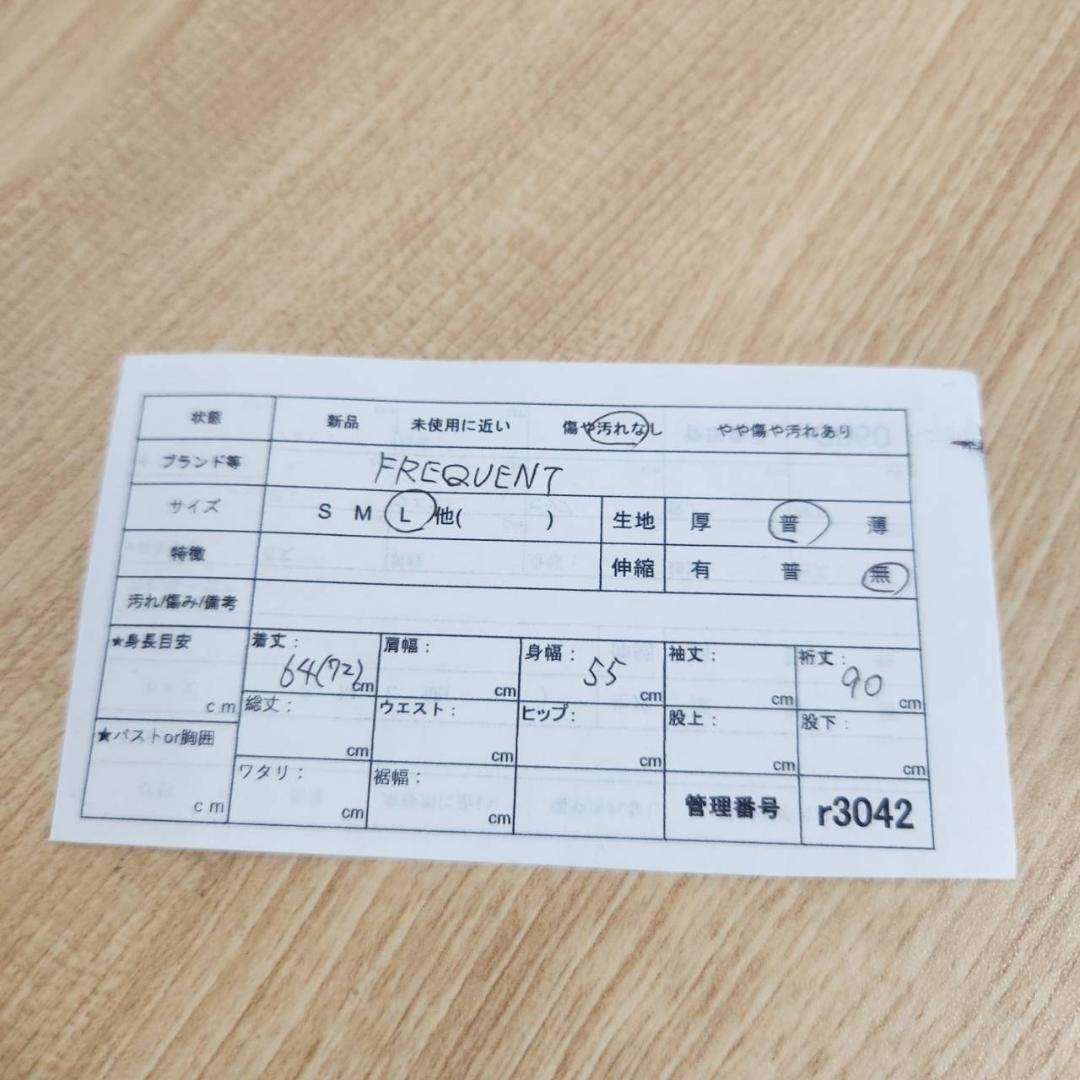 状態 新品 未使用に近い 傷や汚れなし やや傷や汚れあり
ブランド等 FREQUENT
サイズ S M L 他( ) 生地 厚 普 薄
特徴 伸縮 有 普 無
汚れ/傷み/備考
★身長目安 cm 着丈: 64(72) cm 肩幅: cm 身幅: 55 cm 袖丈: cm 裄丈: 90 cm
総丈: cm ウエスト: cm ヒップ: cm 股上: cm 股下: cm
★バストor胸囲 cm ワタリ: cm 裾幅: cm 管理番号 r3042